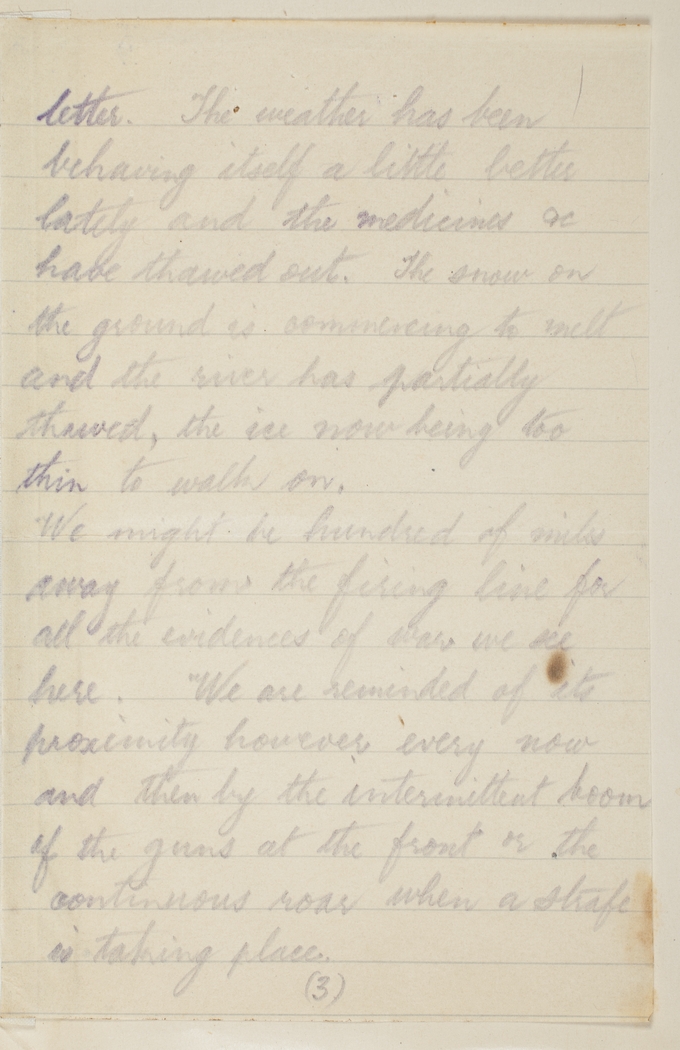 letter. The weather has been
behaving itself a little better
lately and the medicines &c
have thawed out. The snow on
the ground is commencing to melt
and the river has partially
thawed, the ice now being too
thin to walk on.
We might be hundred of miles
away from the firing line for
all the evidences of war we see
here. We are reminded of its
proximity however every now
and then by the intermittent boom
of the guns at the front or the
continuous roar when a strafe
is taking place.
(3)